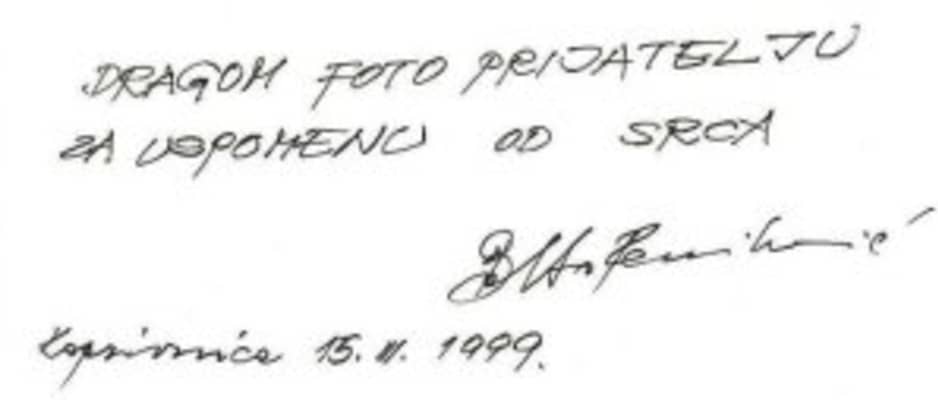 DRAGOM FOTO PRIJATELJU
ZA USPOMENU OD SRCA
Koprivnica 15. II. 1999.